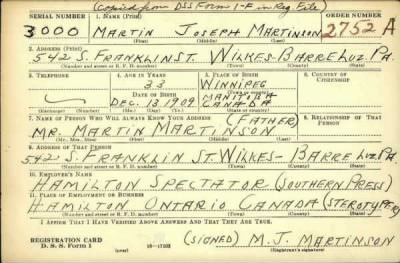 (Copied from DSS Form 1-F in Reg File)
SERIAL NUMBER 1. NAME (Print) ORDER NUMBER
3000 MARTIN JOSEPH MARTINSON 2752 A
(First) (Middle) (Last)
2. ADDRESS (Print)
542 S. FRANKLIN ST. WILKES-BARRE LUZ. PA.
(Number and street or R. F. D. number) (Town) (County) (State)
3. TELEPHONE 4. AGE IN YEARS 5. PLACE OF BIRTH 6. COUNTRY OF CITIZENSHIP
33 WINNIPEG
(Town or county)
DATE OF BIRTH MANITOBA
DEC. 13 1909 CANADA
(Exchange) (Number) (Mo.) (Day) (Yr.) (State or country)
7. NAME OF PERSON WHO WILL ALWAYS KNOW YOUR ADDRESS (FATHER) 8. RELATIONSHIP OF THAT PERSON
MR. MARTIN MARTINSON
(Mr., Mrs., Miss) (First) (Middle) (Last)
9. ADDRESS OF THAT PERSON
542 S. FRANKLIN ST. WILKES-BARRE LUZ. PA.
(Number and street or R. F. D. number) (Town) (County) (State)
10. EMPLOYER'S NAME
HAMILTON SPECTATOR (SOUTHERN PRESS)
11. PLACE OF EMPLOYMENT OR BUSINESS
HAMILTON ONTARIO CANADA
(Number and street or R. F. D. number) (Town) (County) (State)
I AFFIRM THAT I HAVE VERIFIED ABOVE ANSWERS AND THAT THEY ARE TRUE.
REGISTRATION CARD
D. S. S. FORM 1 (over) 16-17105 (SIGNED) M. J. MARTINSON
(Registrant's signature)